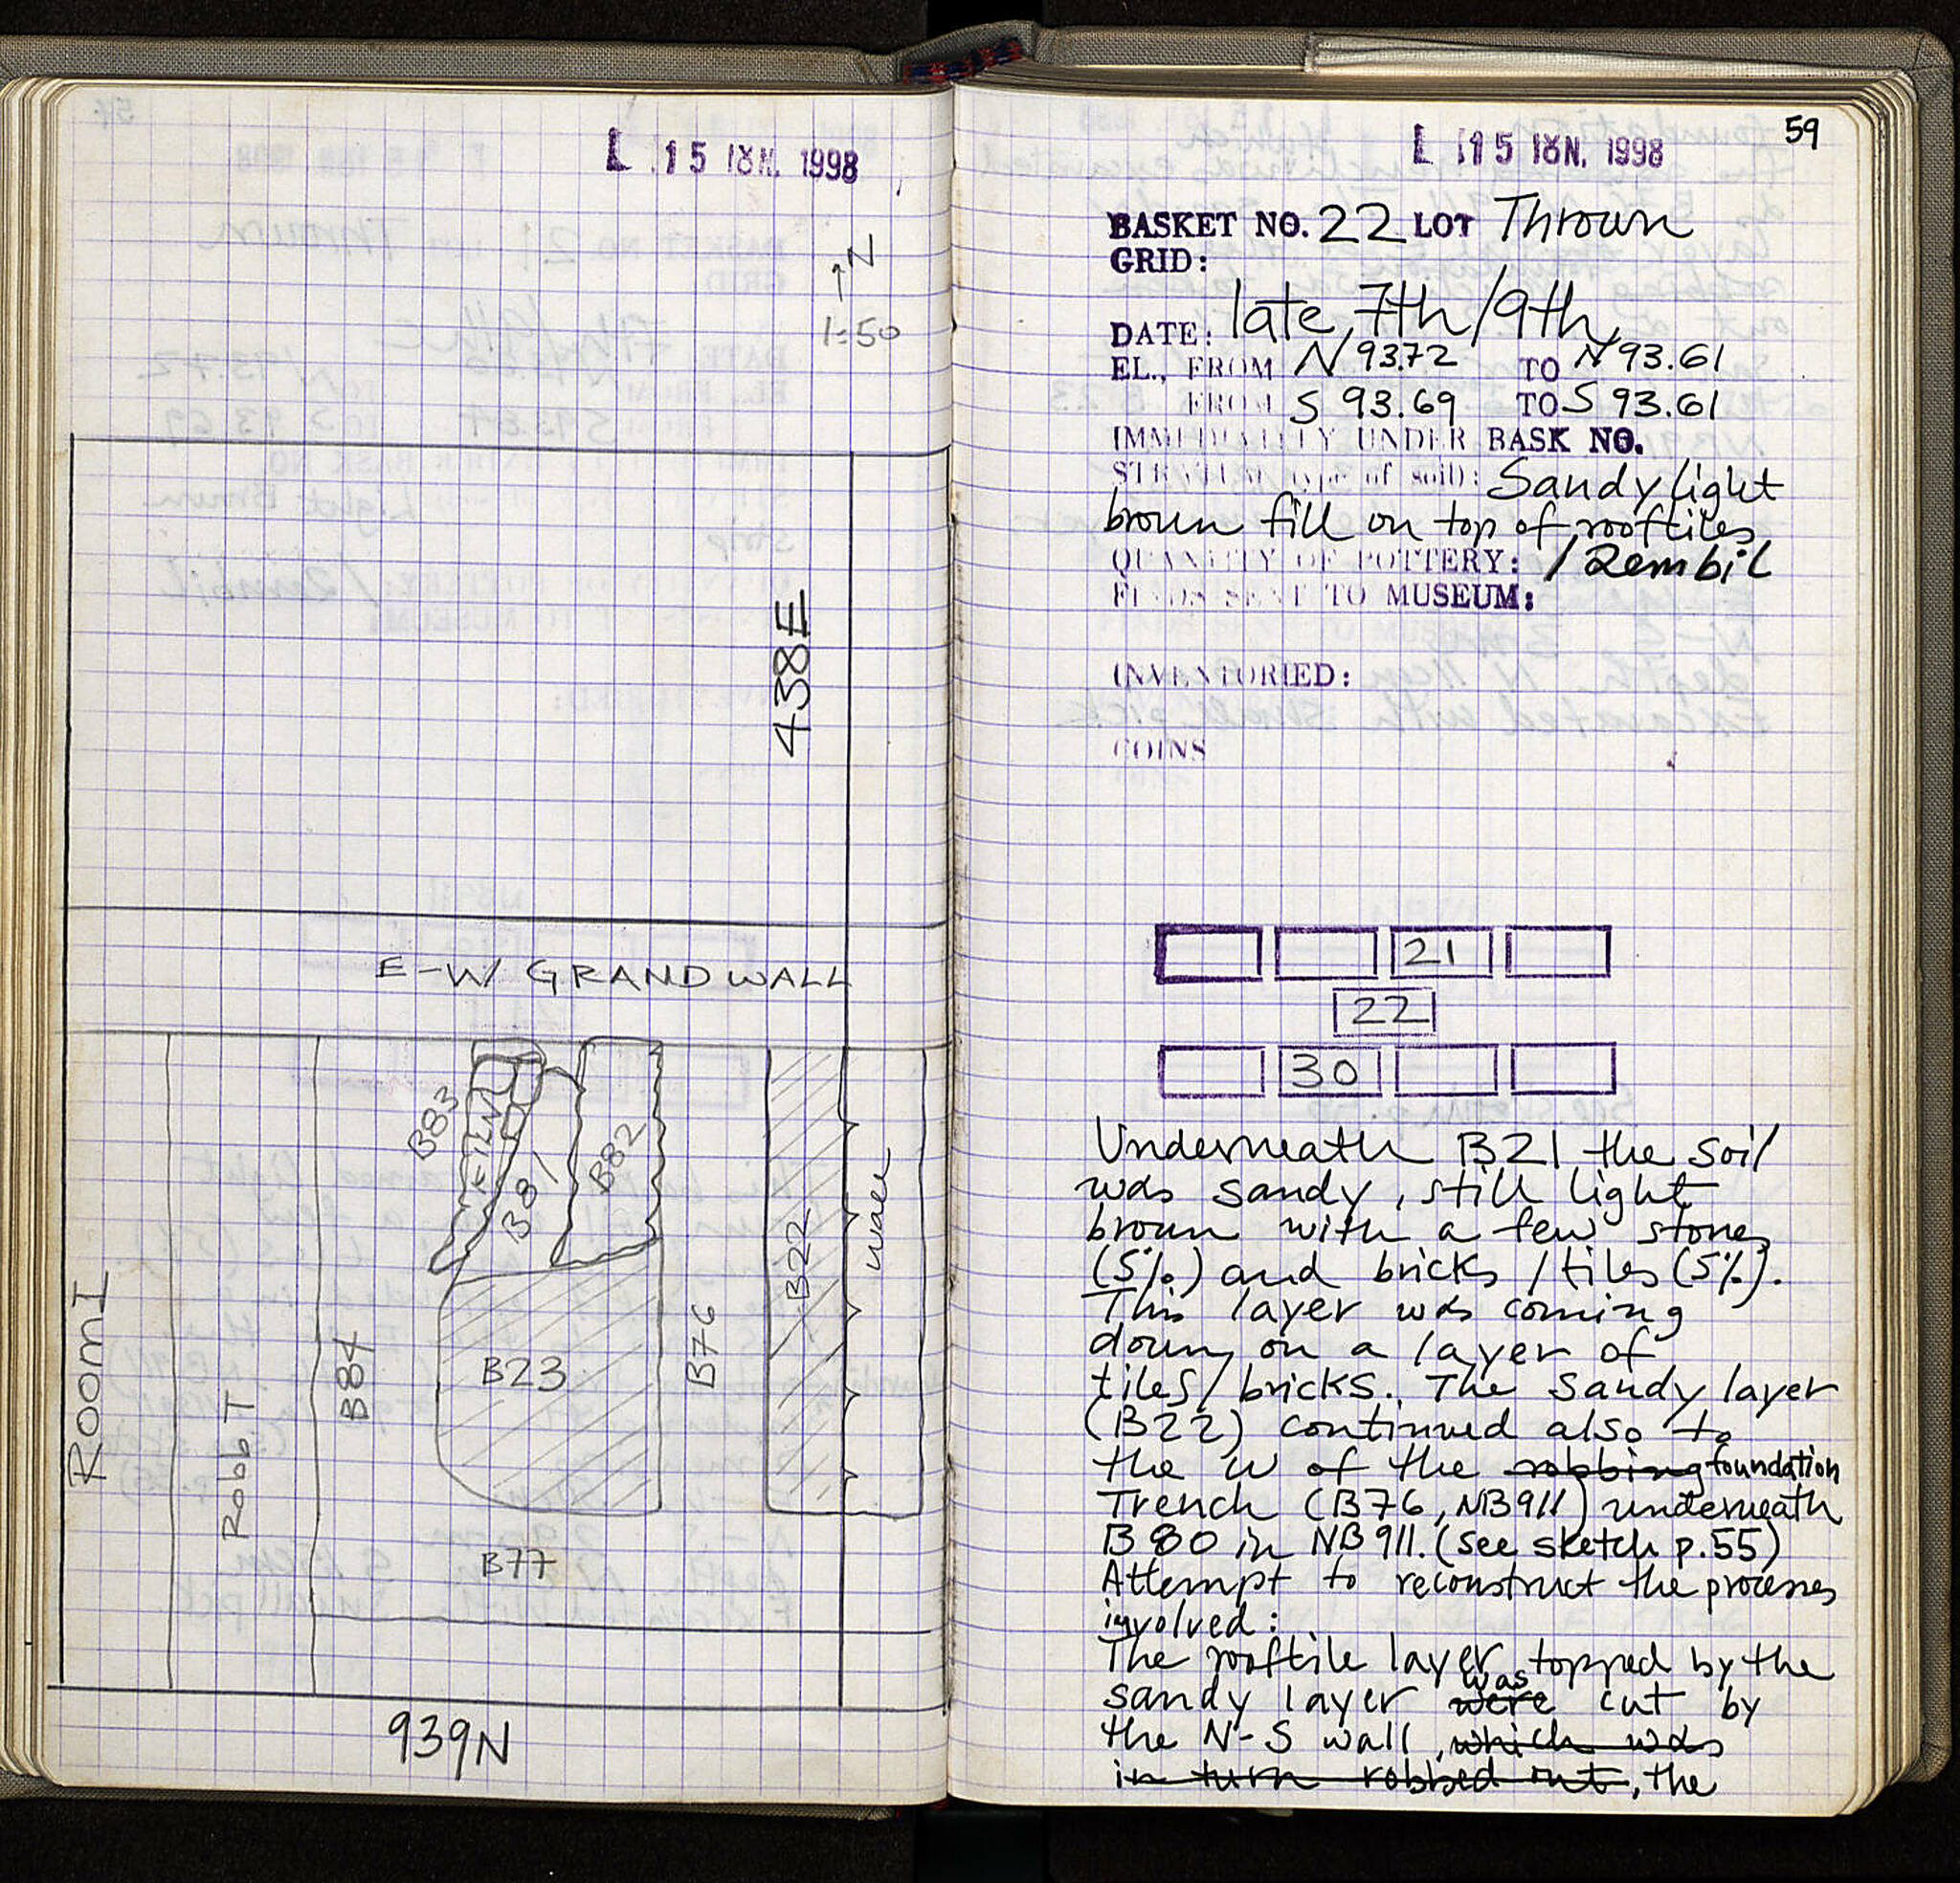 L 15 IUN. 1998
↑N
1:50
438E
E-W GRAND WALL
B83
KILN
B81
B82
B22
Wall
Room I
Robb T
B84
B23
B76
B77
939N
59
L 15 IUN. 1998
BASKET NO. 22 LOT Thrown
GRID:
DATE: late 7th/9th
EL., FROM N 93.72 TO N 93.61
FROM S 93.69 TO S 93.61
IMMEDIATELY UNDER BASK NO.
STRATUM (type of soil): Sandy light
brown fill on top of rooftiles
QUANTITY OF POTTERY: 1 Zembil
FINDS SENT TO MUSEUM:
INVENTORIED:
COINS
21
22
30
Underneath B21 the soil
was sandy, still light
brown with a few stones
(5%) and bricks/tiles (5%).
This layer was coming
down on a layer of
tiles/bricks. The sandy layer
(B22) continued also to
the W of the robbing foundation
Trench (B76, NB911) underneath
B80 in NB911. (see sketch p.55)
Attempt to reconstruct the processes
involved:
The rooftile layer topped by the
sandy layer were was cut by
the N-S wall, which was
in turn robbed out, the